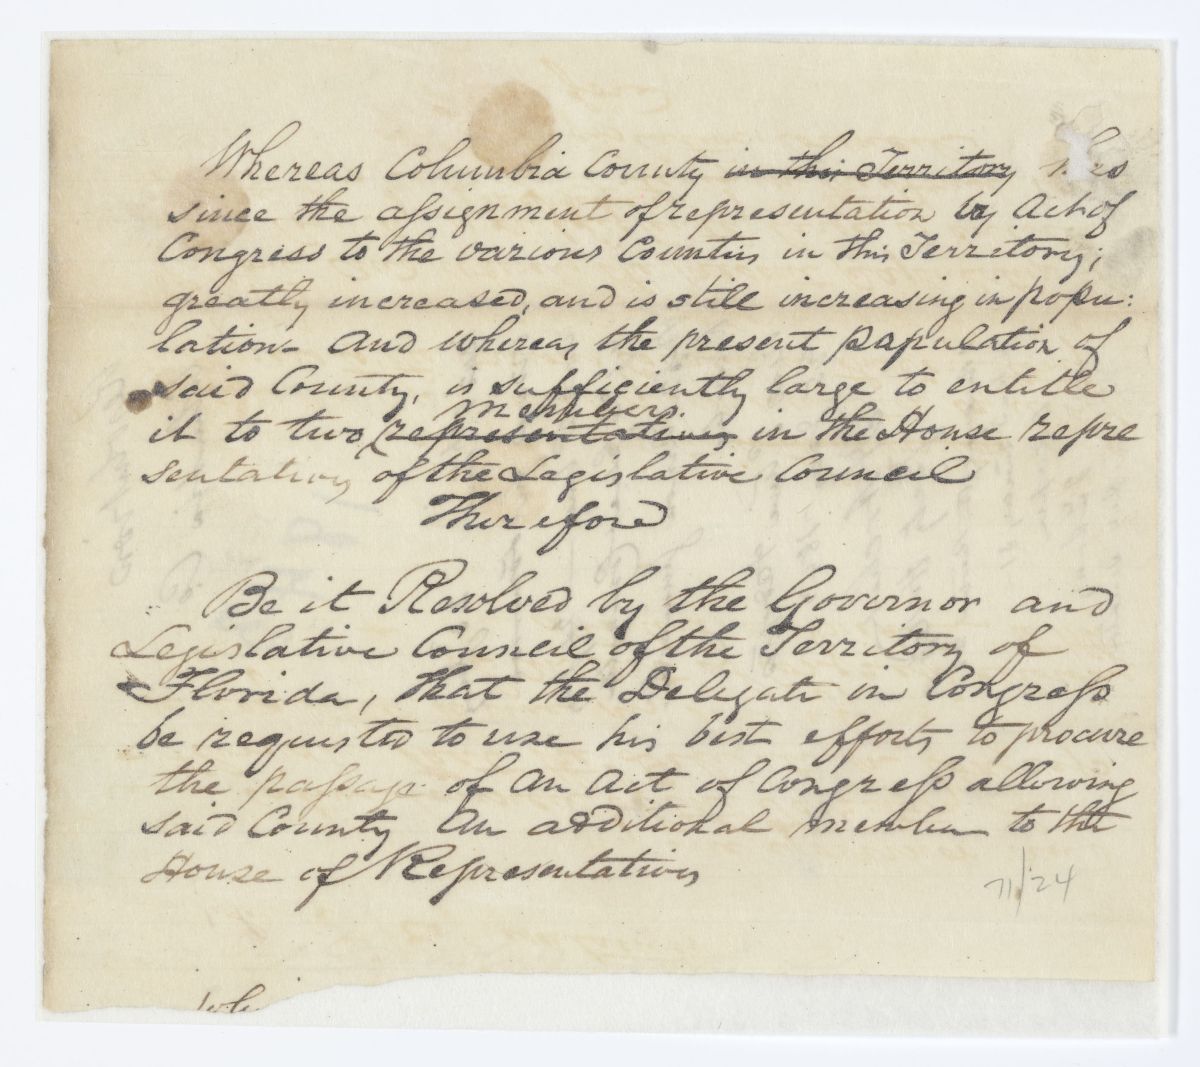 Whereas Columbia County in this Territory has
since the assignment of representation by Act of
Congress to the various Counties in this Territory;
greatly increased, and is still increasing in popu:
lation - And whereas the present papulation of
said County, is sufficiently large to entitle
members
it to two (representatives in the House repre
sentatives of the Legislative Council
Therefore
Be it Resolved by the Governor and
Legislative Council of the Territory of
Florida, that the Delegate in Congress
be requested to use his best efforts to procure
the passage of an Act of Congress allowing
said County An additional member to the
House of Representatives
71/24